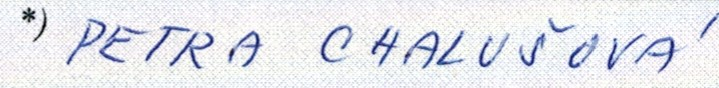 *) PETRA CHALUŠOVÁ